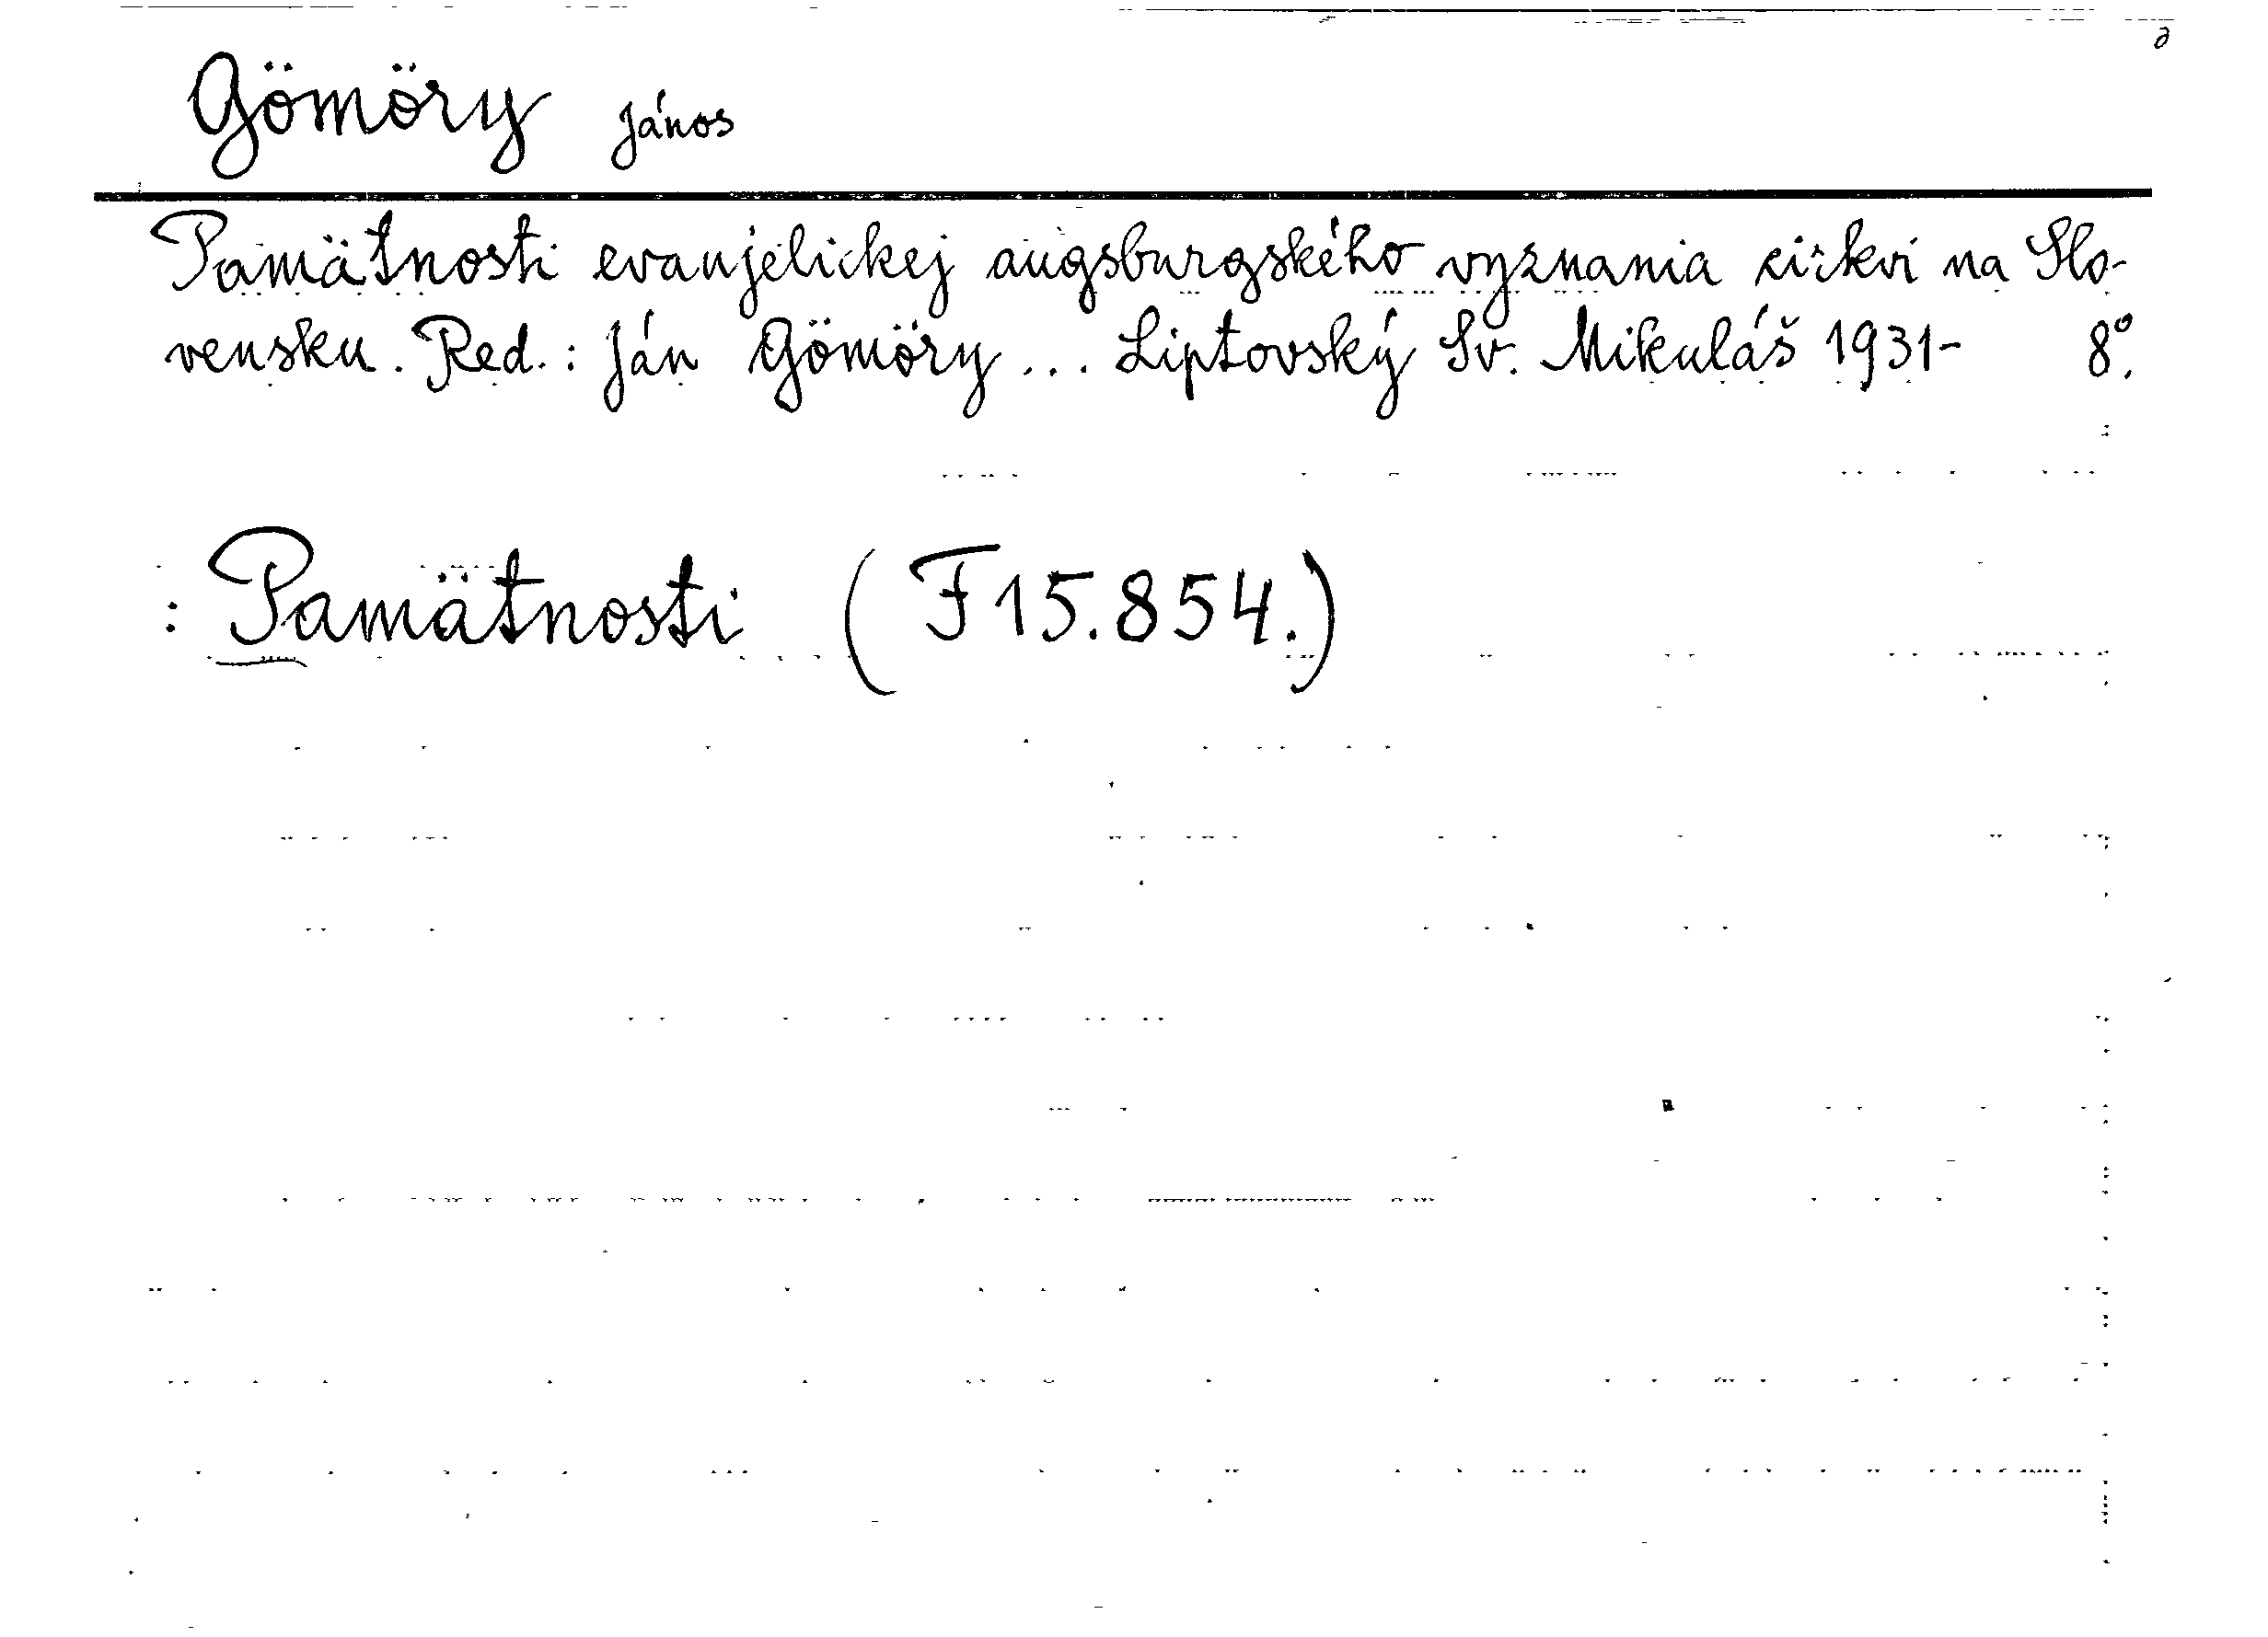 Gömöry János
Pamätnosti evanjelickej augsburgského vyznania cirkvi na Slo-
vensku. Red.: Ján Gömöry ... Liptovský Sv. Mikuláš 1931- 8°.
: Pamätnosti (F 15.854.)